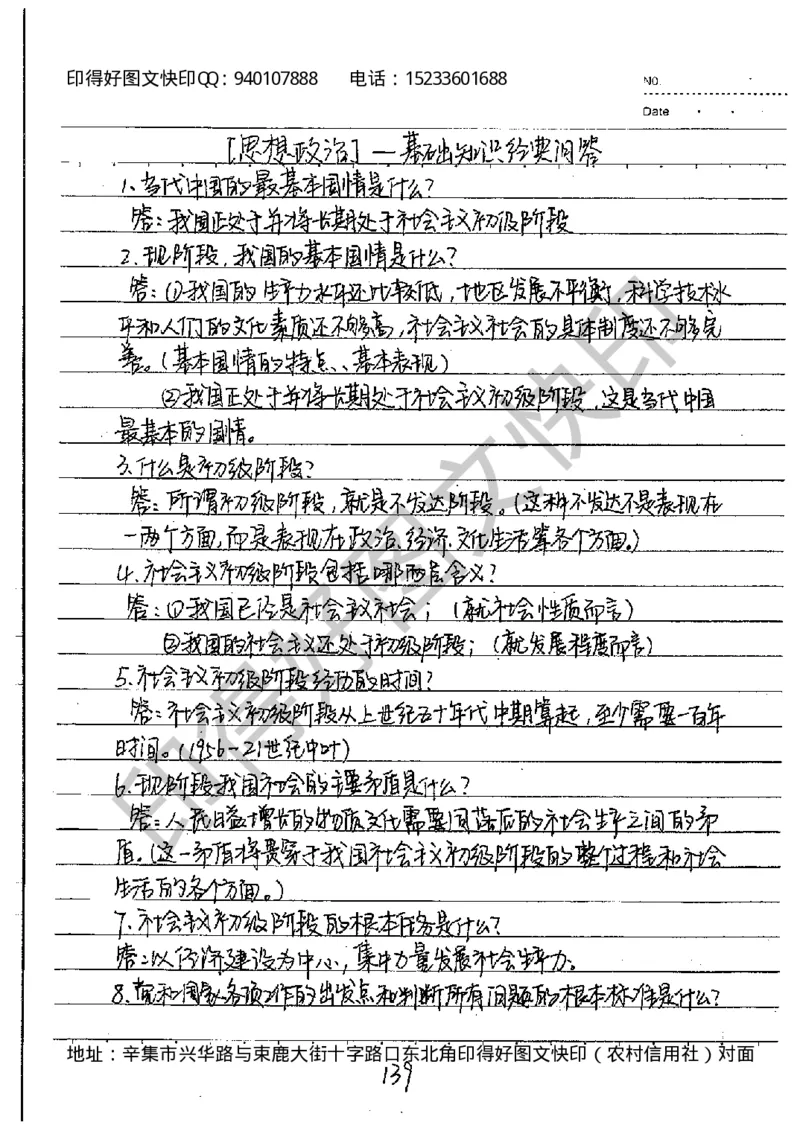 印得好图文快印QQ：940107888 电话：15233601688
No.
Date
[思想政治]—基础知识经典问答
1、当代中国的最基本国情是什么？
答：我国正处于并将长期处于社会主义初级阶段
2、现阶段，我国的基本国情是什么？
答：①我国的生产力水平还比较低，地区发展不平衡，科学技术水
平和人们的文化素质还不够高，社会主义社会的具体制度还不够完
善。（基本国情的特点、、基本表现）
②我国正处于并将长期处于社会主义初级阶段，这是当代中国
最基本的国情。
3、什么是初级阶段？
答：所谓初级阶段，就是不发达阶段。（这种不发达不是表现在
一两个方面，而是表现在政治、经济、文化生活等各个方面。）
4、社会主义初级阶段包括哪两层含义？
答：①我国已经是社会主义社会；（就社会性质而言）
②我国的社会主义还处于初级阶段；（就发展程度而言）
5、社会主义初级阶段经历的时间？
答：社会主义初级阶段从上世纪五十年代中期算起，至少需要一百年
时间。（1956-21世纪中叶）
6、现阶段我国社会的主要矛盾是什么？
答：人民日益增长的物质文化需要同落后的社会生产之间的矛
盾。（这一矛盾将贯穿于我国社会主义初级阶段的整个过程和社会
生活的各个方面。）
7、社会主义初级阶段的根本任务是什么？
答：以经济建设为中心，集中力量发展社会生产力。
8、党和国家各项工作的出发点和判断所有问题的根本标准是什么？
地址：辛集市兴华路与束鹿大街十字路口东北角印得好图文快印（农村信用社）对面
139
印得好图文快印